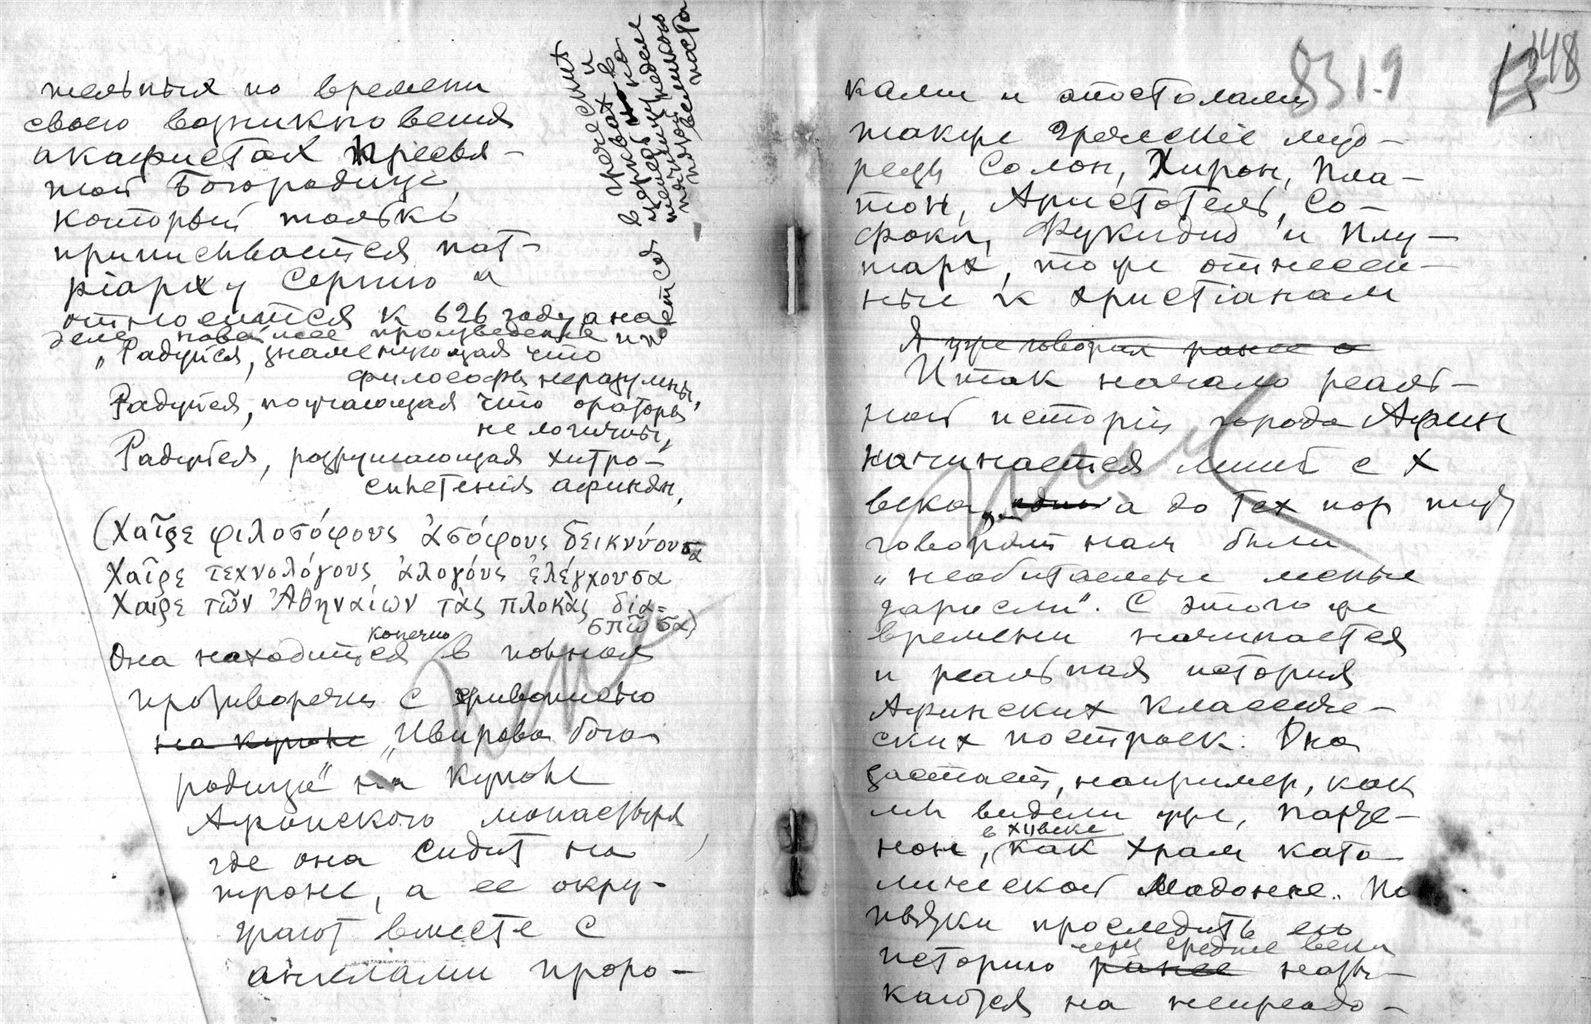 тельных по времени
своего возникновения
акафистах Пресвя-
той Богородице,
который только
приписывается пат-
риарху Сергию и
относится к 626 году а на
деле новейшее произведение и поется в
греческих
церквах
на
недели
великого
поста
„Радуйся, знаменующая что
философы неразумны,
Радуйся, поучающая что ораторы
не логичны,
Радуйся, разрушающая хитро-
сплетения афинян,
(Χαῖρε φιλοσόφους ἀσόφους δεικνύουσα
Χαῖρε τεχνολόγους ἀλογόυς ἐλέγχουσα
Χαῖρε τῶν Ἀθηναίων τὰς πλοκὰς δια=
σπῶσα)
Она находится конечно в полном
противоречии с живописью
на куполе „Ивирова бого
родица" на куполе
Афинского монастыря,
где она сидит на
троне, а ее окру-
жают вместе с
ангелами проро-
831.9
148
ками и апостолами
также греческие муд-
рецы Солон, Хирон, Пла-
тон, Аристотель, Со-
фокл, Фукидид и Плу-
тарх, тоже отнесен-
ные к христианам
Я уже говорил ранее о
Итак начало реаль-
ной истории города Афин
начинается лишь с X
века, а до тех пор тут
говорят нам были
„необитаемые лесные
заросли". С этого же
времени начинается
и реальная история
Афинских классиче-
ских построек. Она
застает, например, как
мы видели уже, Парфе-
нон, в XII веке как храм като
лической Мадонны. По
пытки проследить его
историю через средние века ранее наты-
каются на непреодо-